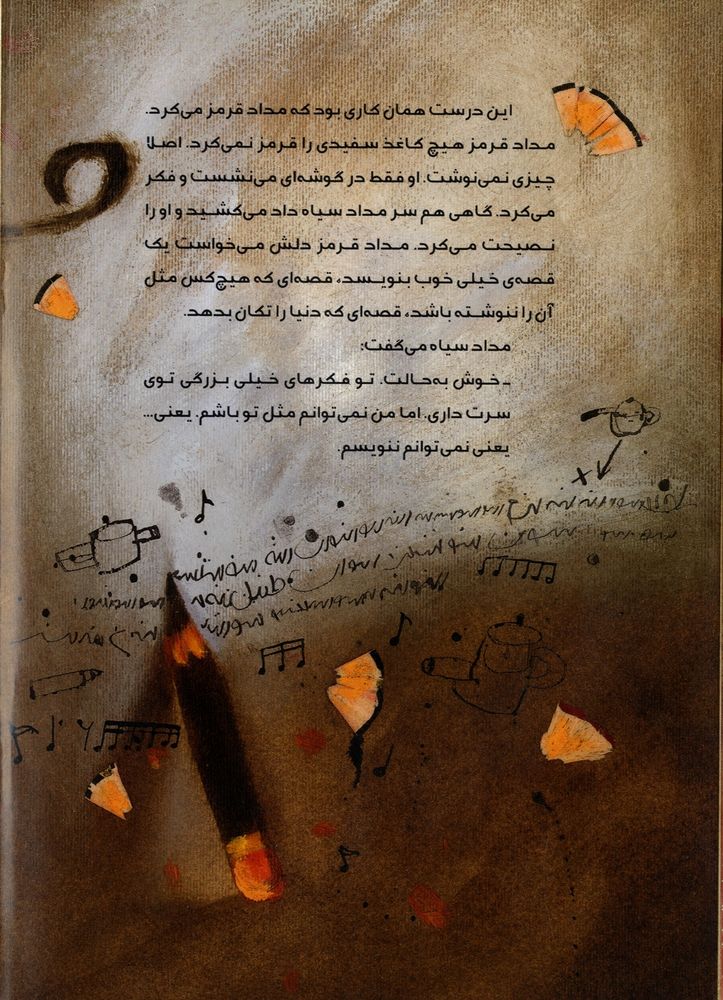 این درست همان کاری بود که مداد قرمز می‌کرد.
مداد قرمز هیچ کاغذ سفیدی را قرمز نمی‌کرد. اصلا
چیزی نمی‌نوشت. او فقط در گوشه‌ای می‌نشست و فکر
می‌کرد. گاهی هم سر مداد سیاه داد می‌کشید و او را
نصیحت می‌کرد. مداد قرمز دلش می‌خواست یک
قصه‌ی خیلی خوب بنویسد، قصه‌ای که هیچ‌کس مثل
آن را ننوشته باشد، قصه‌ای که دنیا را تکان بدهد.
مداد سیاه می‌گفت:
ـ خوش به‌حالت. تو فکرهای خیلی بزرگی توی
سرت داری. اما من نمی‌توانم مثل تو باشم. یعنی...
یعنی نمی‌توانم ننویسم.